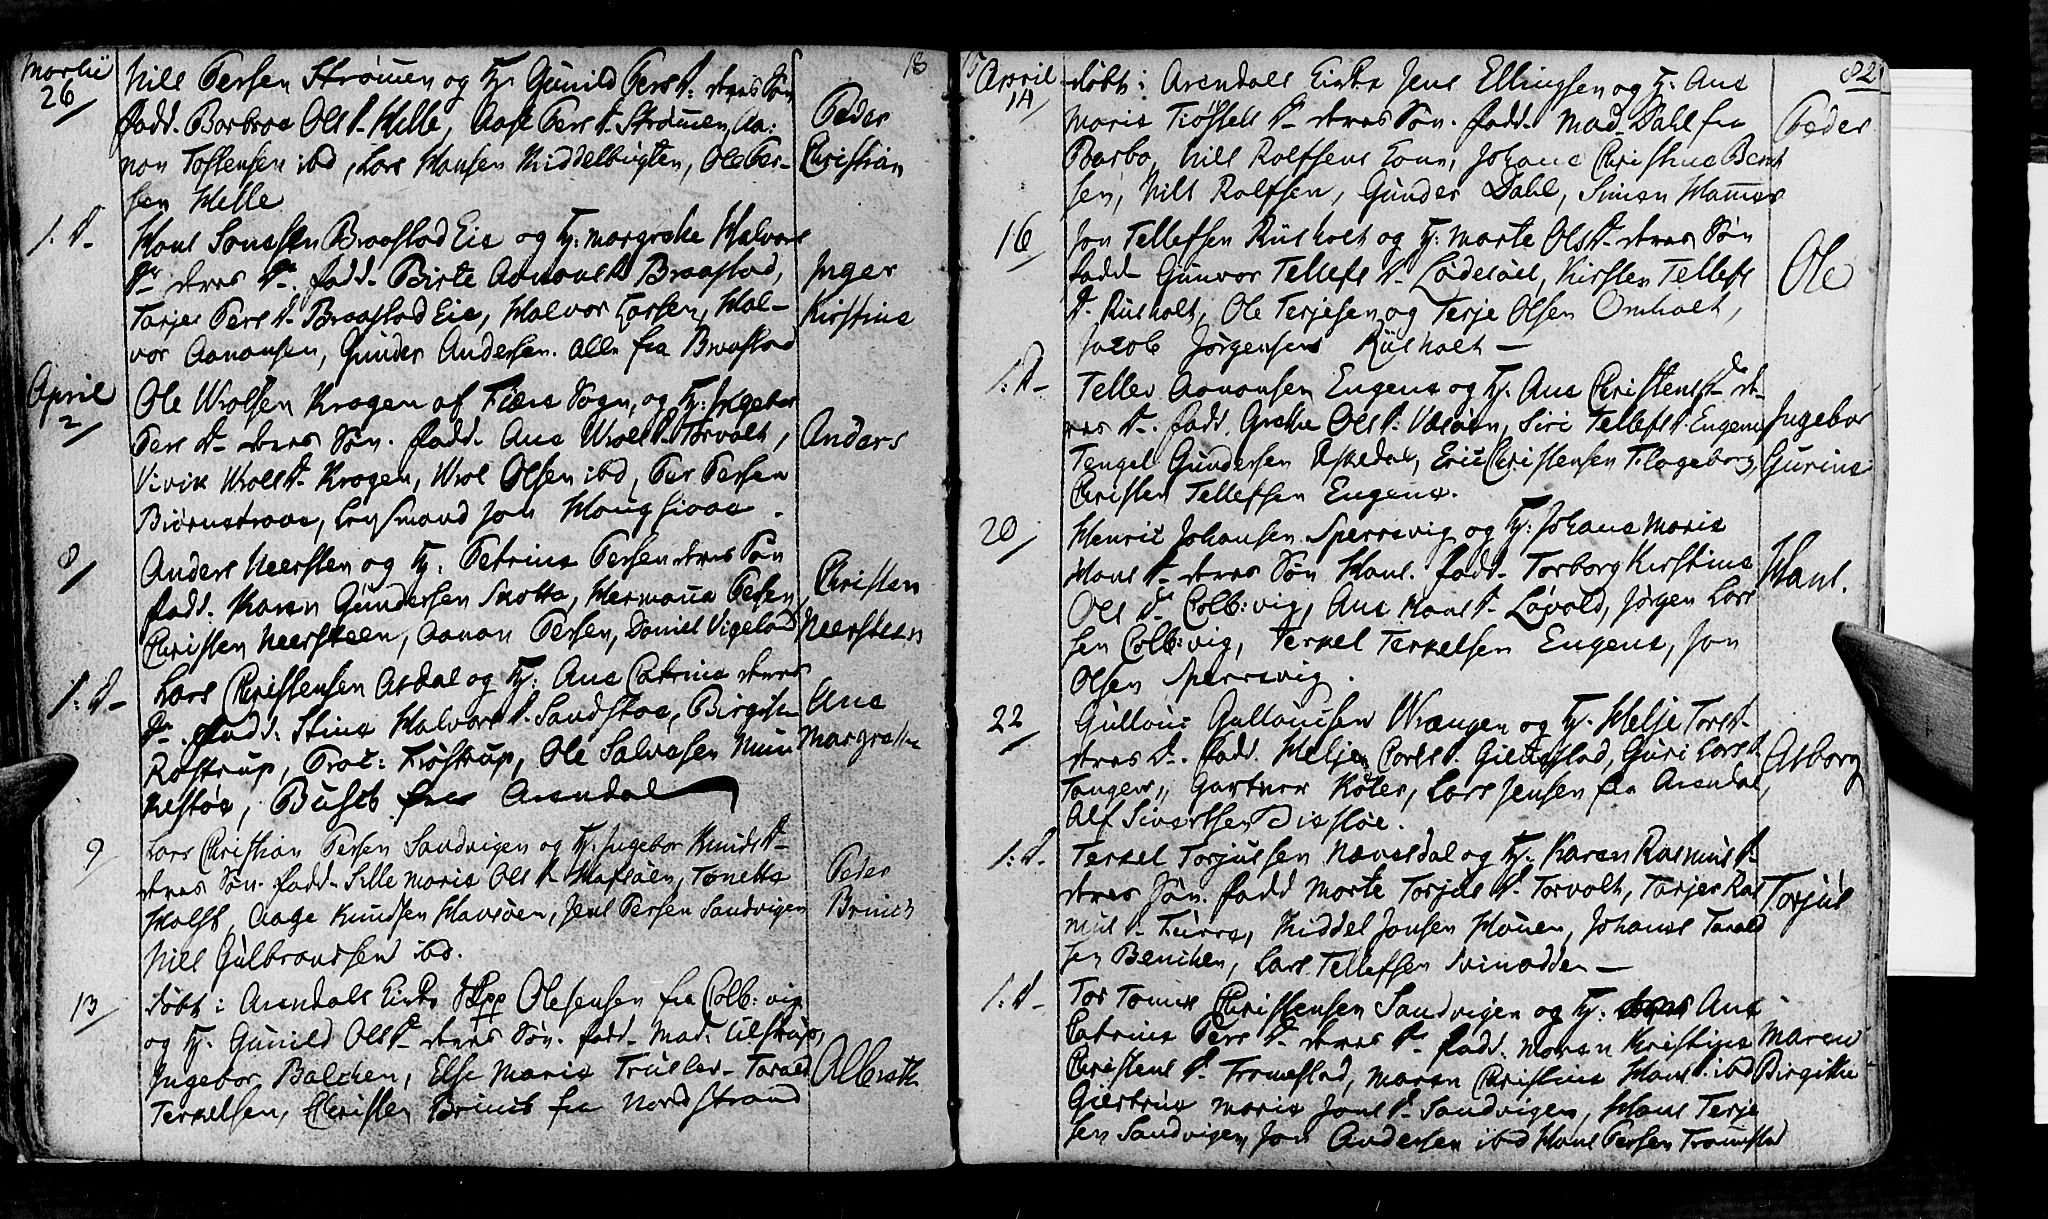 Martii
26
18
Nils Persen Strømen og H: Gunild Pers D. deres Søn
fadd. Barbroe Ols D. Helle, Aase Pers D. Strømen, Aa:
non Tostensen ibd, Lars Hansen Kiddelbugten, Ole Per-
sen Helle
Peder
Christian
1. D.
Hans Braastad Eie og H: Margrethe Halvors
Dr deres Dr. fadd. Birte Aanons D. Braastad,
Tarjer Pers D. Braastad Eie, Halvor Larsen, Hal-
vor Aanonsen, Gunder Andersen. alle fra Braastad
Inger
Kirstine
April
2
Ole Wrolsen Kragen af Fiære Sogn, og H: Ingebor
Pers D. deres Søn. fadd. Ane Wrols D. Torvolt,
Vivik Wrols D. Kragen, Wrol Olsen ibd, Per Persen
Biørnstraae, Jon
Anders
8
Anders Neersten og H: Petrine Persen deres Søn
fadd. Karen Gundersen Skotte, Hermana Persen
Christen Neersteen, Aanon Persen, Daniel Vigeland
Christen
Neersteen
1. D.
Lars Christensen Asdal og H: Ane Catrine deres
Dr. fadd: Stine Halvors D. Sandstøe, Birgitte
Rostrup, Proc: Frøstrup, Ole Salvesen Mun
kestøe, Buseb fra Arendal
Ane
Margrethe
9
Lars Christian Persen Sandvigen og H: Ingebor Knuds D.
deres Søn. fadd. Sille Marie Ols D. Hafsøen, Tonette
Holst, Aage Knudsen Havsøen, Jens Persen Sandvigen
Nils Gulbrandsen ibd.
Peder
Brinch
13
døbt i Arendals Kirke Olesensen fra Colb: vig
og H. Gunild Ols D. deres Søn. fadd. Mad: Ulstrup,
Ingebor Balchen, Else Marie Trusler. Tarald
Terkelsen, Christen Brinch fra Nordstrand
Albreth
April
14
82
døbt i Arendals Kirke Jens Ellingsen og H: Ane
Marie Tiøstels D. deres Søn. fadd. Mad. Dahl fra
Barbo, Nils Rolfsens Kone, Johane Christine Bent
sen, Nils Rolfsen, Gunder Dahl, Simon Hammer
Peder
16
Jon Tellefsen Rusholt og H: Marte Ols D. deres Søn
fadd. Gunvor Tellefs D. Ladesøel, Kirsten Tellefs
D. Rusholt, Ole Terjesen og Terje Olsen Omholt,
Jacob Jørgensen Rusholt —
Ole
1. D.
Tellev Aanonsen Engene og H. Ane Christens Dr. de
res D. fadd. Grethe Ols D. Ulsøen, Siri Tellefs D. Engene
Tengel Gundersen Askedal, Eric Christensen Flageborg
Christen Tellefsen Engene.
Ingebor
Gurine
20
Henric Johansen Sperrevig og H: Johane Marie
Hans D. deres Søn Hans. fadd. Torborg Kirstine
Ols Dr Colb: vig, Ane Hans D. Løvold, Jørgen Lars
sen Colb: vig, Terkel Terkelsen Engene, Jon
Olsen Sperrevig.
Hans.
22
Gullou Gullousen Wrængen og H. Helje Tors D.
deres D. fadd. Helje Carls D. Gielstad, Guri Lars D.
Tangen, Gartner Køter, Lars Jensen fra Arendal,
Alf Sivertsen Disløe.
Asborg
1. D.
Terkel Torjussen Nævesdal og H. Karen Rasmus D.
deres Søn. fadd. Marte Torjus D. Torvolt, Tarjer Ras
mus D. Furre, Kiddel Jonsen Houen, Johans Tarald
sen Benchen, Lars Tellefsen Svinodden —
Torjus
1. D.
Tor Tomas Christensen Sandvigen og H: Ane
Catrine Pers D. deres D. fadd. Maren Kristine
Christens D. Tromestad, Maren Christine Hans D. ibd
Giertrue Marie Jons D. Sandvigen, Hans Terje
sen Sandvigen, Jon Andersen ibd Hans Persen Tromestad
Maren
Birgitte